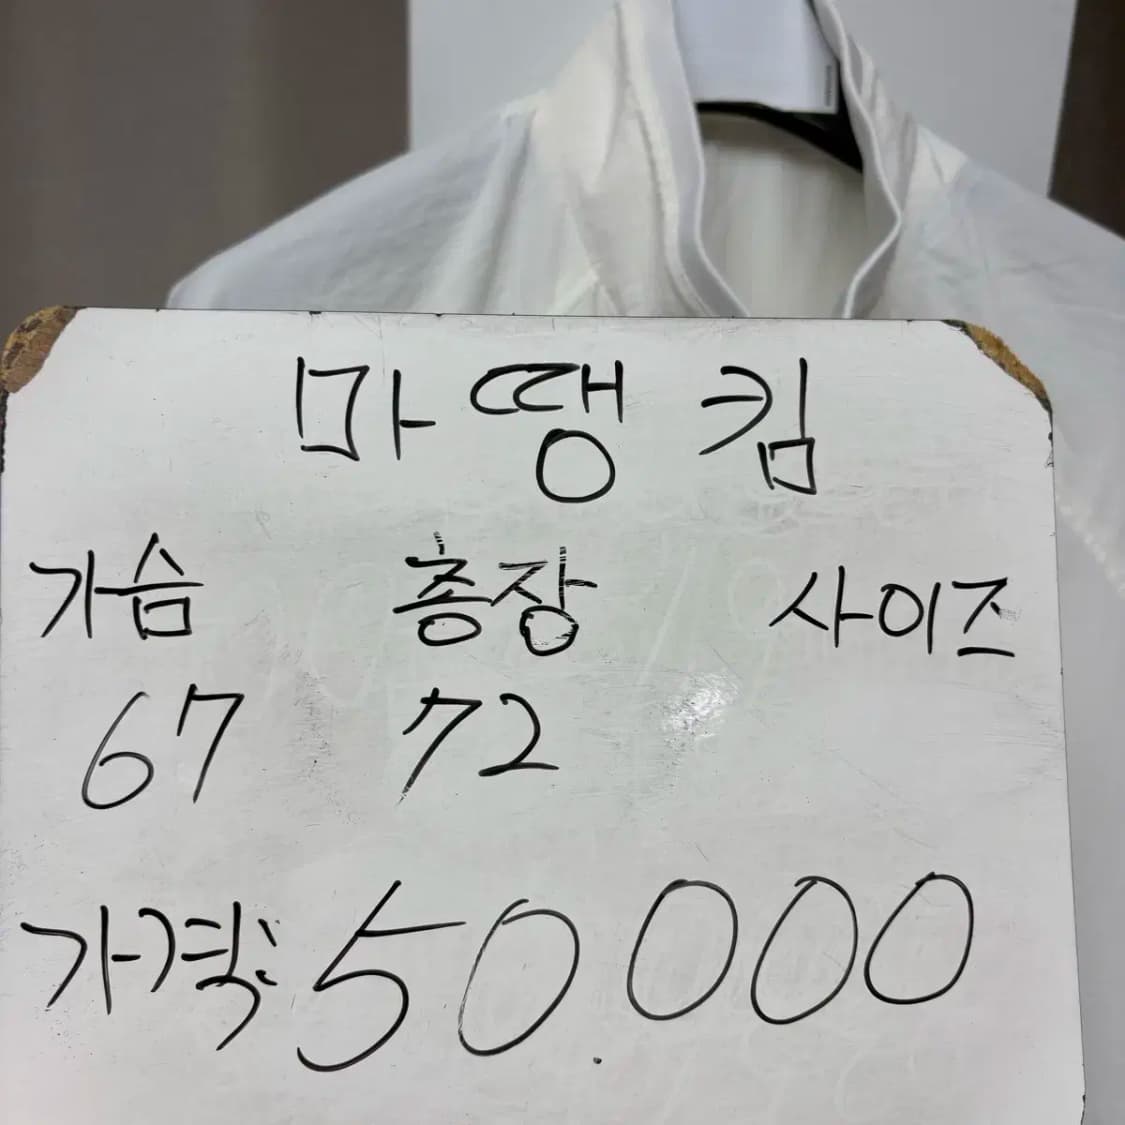 마땡킴
가슴 총장 사이즈
67 72
가격: 50.000